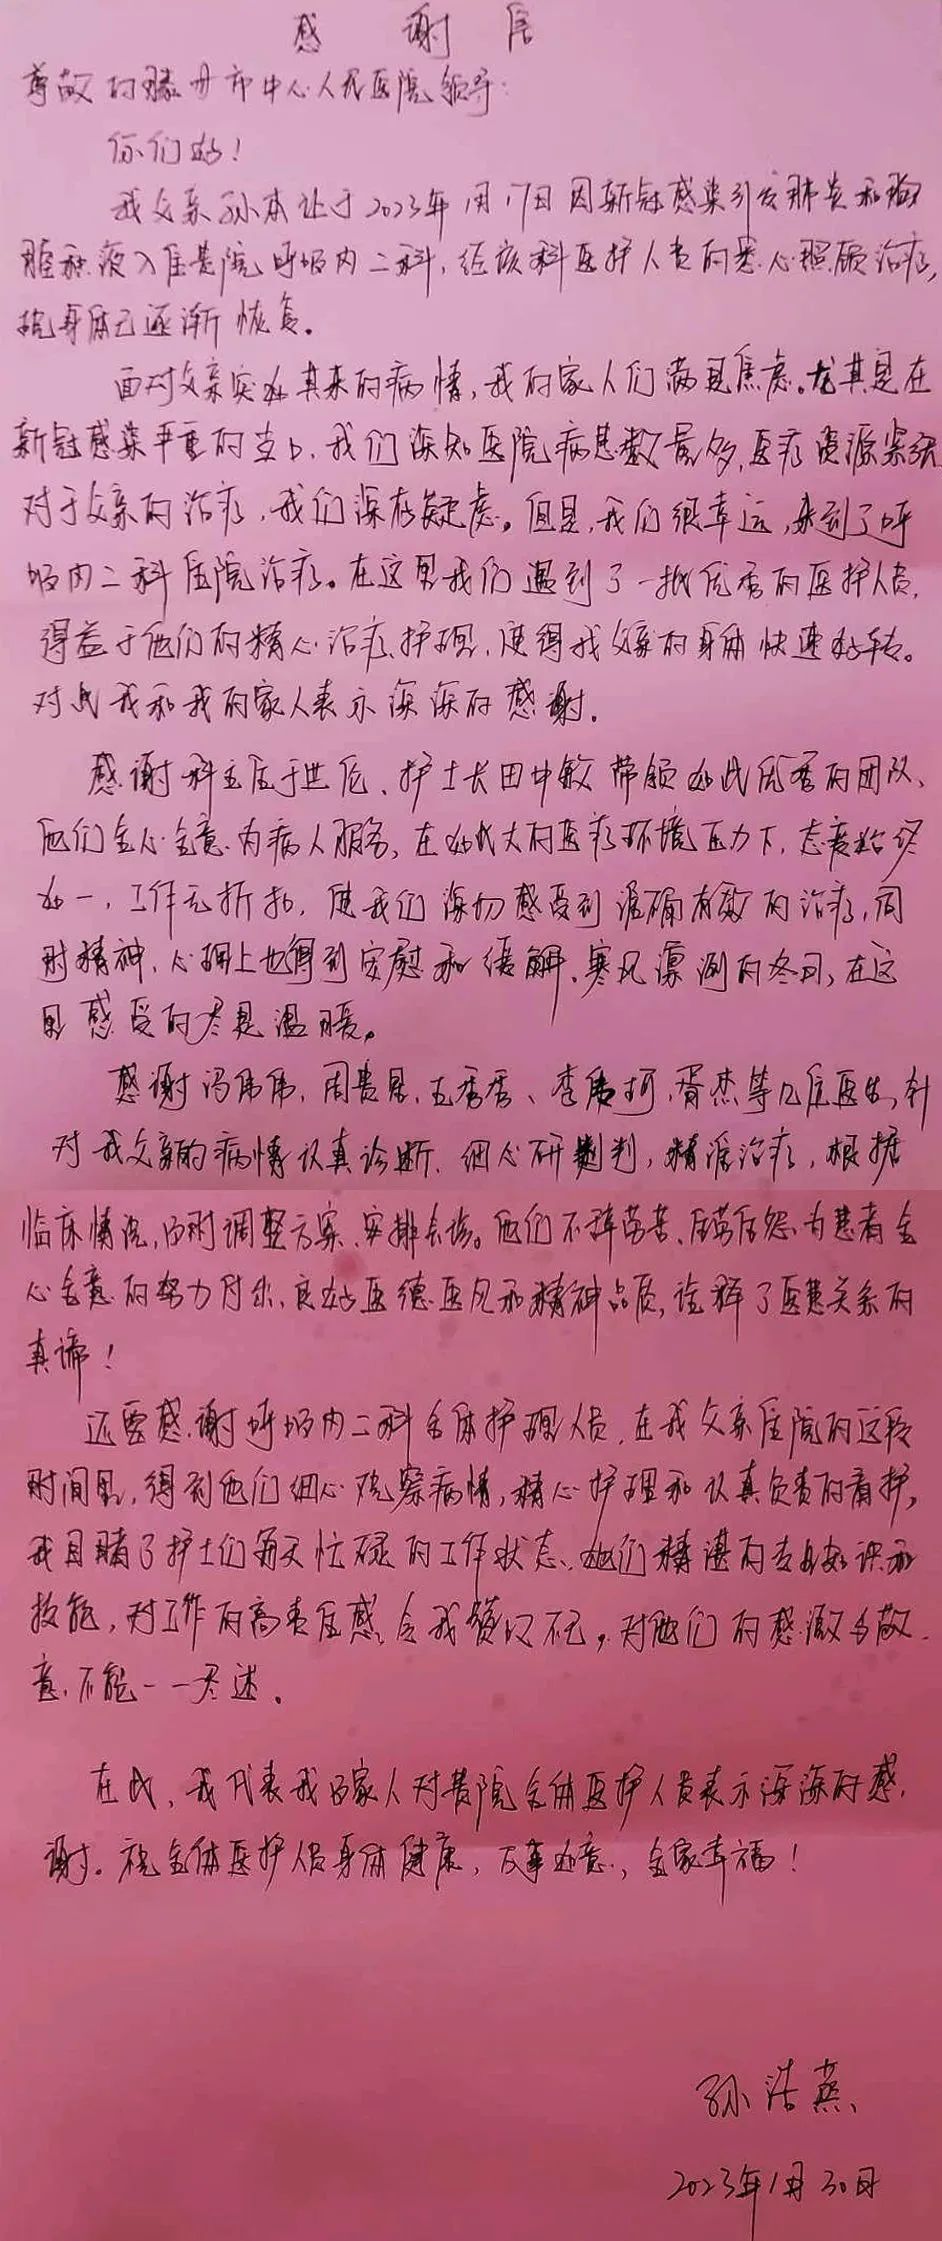 感谢信
尊敬的滕州市中心人民医院领导:
你们好!
我父亲孙本让于2023年1月17日因新冠感染引发肺炎和胸
腔积液入住贵院呼吸内二科,经该科医护人员的悉心照顾治疗,
现身体已逐渐恢复。
面对父亲突如其来的病情,我的家人们满是焦虑。尤其是在
新冠感染严重的当口,我们深知医院病患数量多,医疗资源紧张
对于父亲的治疗,我们深存疑虑。但是,我们很幸运,来到了呼
吸内二科住院治疗。在这里我们遇到了一批优秀的医护人员,
得益于他们的精心治疗、护理,使得我父亲的身体快速好转。
对此我和我的家人表示深深的感谢。
感谢科主任于世伦、护士长田中敏带领如此优秀的团队、
他们全心全意为病人服务,在如此大的医疗环境压力下,态度始终
如一,工作无折扣,使我们深切感受到准确有效的治疗,同
时精神、心理上也得到安慰和缓解、寒风凛冽的冬日,在这
里感受的尽是温暖。
感谢冯伟伟,周贵昆,王秀秀、李庆珂,胥杰等几位医生,针
对我父亲的病情认真诊断、细心研判,精准治疗,根据
临床情况,即时调整方案、安排会诊。他们不辞劳苦、任劳任怨为患者全
心全意的努力付出,良好医德医风和精神品质,诠释了医患关系的
真谛!
还要感谢呼吸内二科全体护理人员,在我父亲住院的这段
时间里,得到他们细心观察病情,精心护理和认真负责的看护,
我目睹了护士们每天忙碌的工作状态、她们精湛的专业知识和
技能,对工作的高责任感,令我赞叹不已,对他们的感激与敬
意,不能一一尽述。
在此,我代表我的家人对贵院全体医护人员表示深深的感
谢。祝全体医护人员身体健康,万事如意,全家幸福!
孙浩燕
2023年1月30日